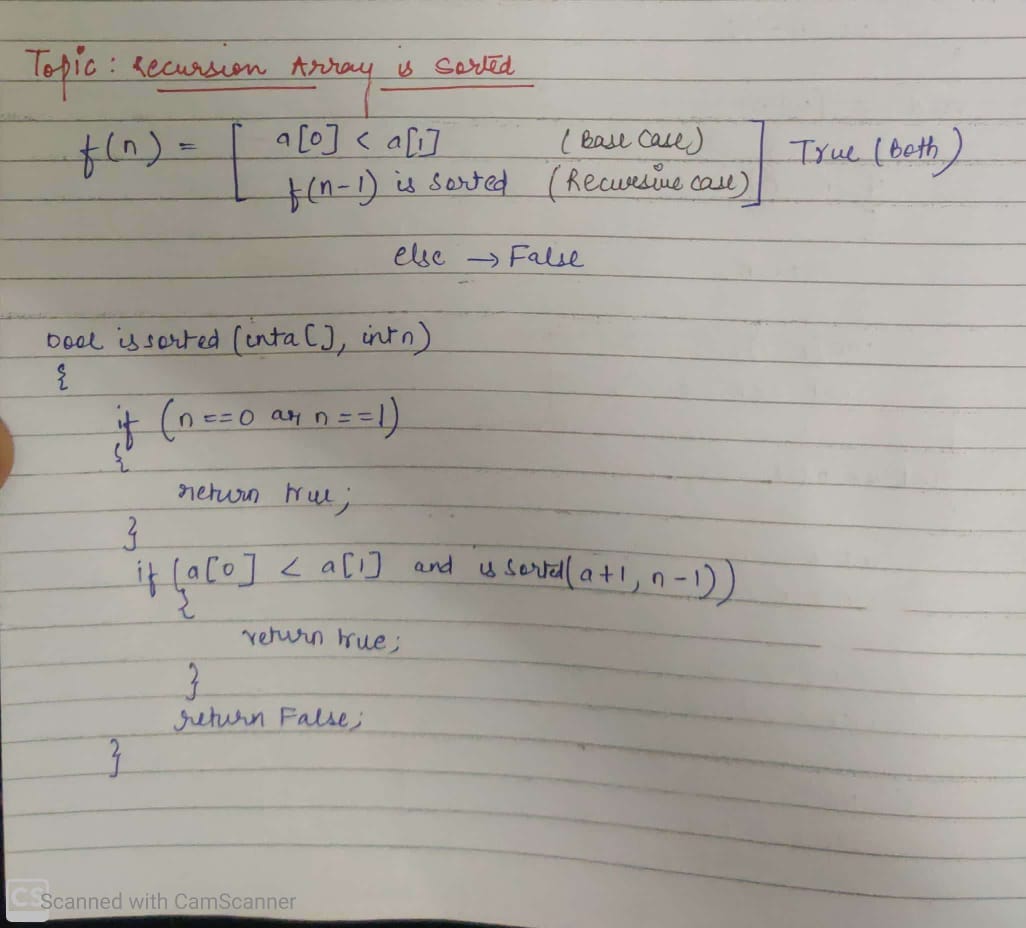 Topic : Recursion Array is Sorted
f(n) = [ a[0] < a[1] (Base Case) ] True (Both)
f(n-1) is sorted (Recursive case)
else → False
bool issorted (int a [], int n)
{
if (n ==0 or n ==1)
{
return true;
}
if (a[0] < a[1] and is sorted(a+1, n-1))
{
return true;
}
return False;
}
CS Scanned with CamScanner